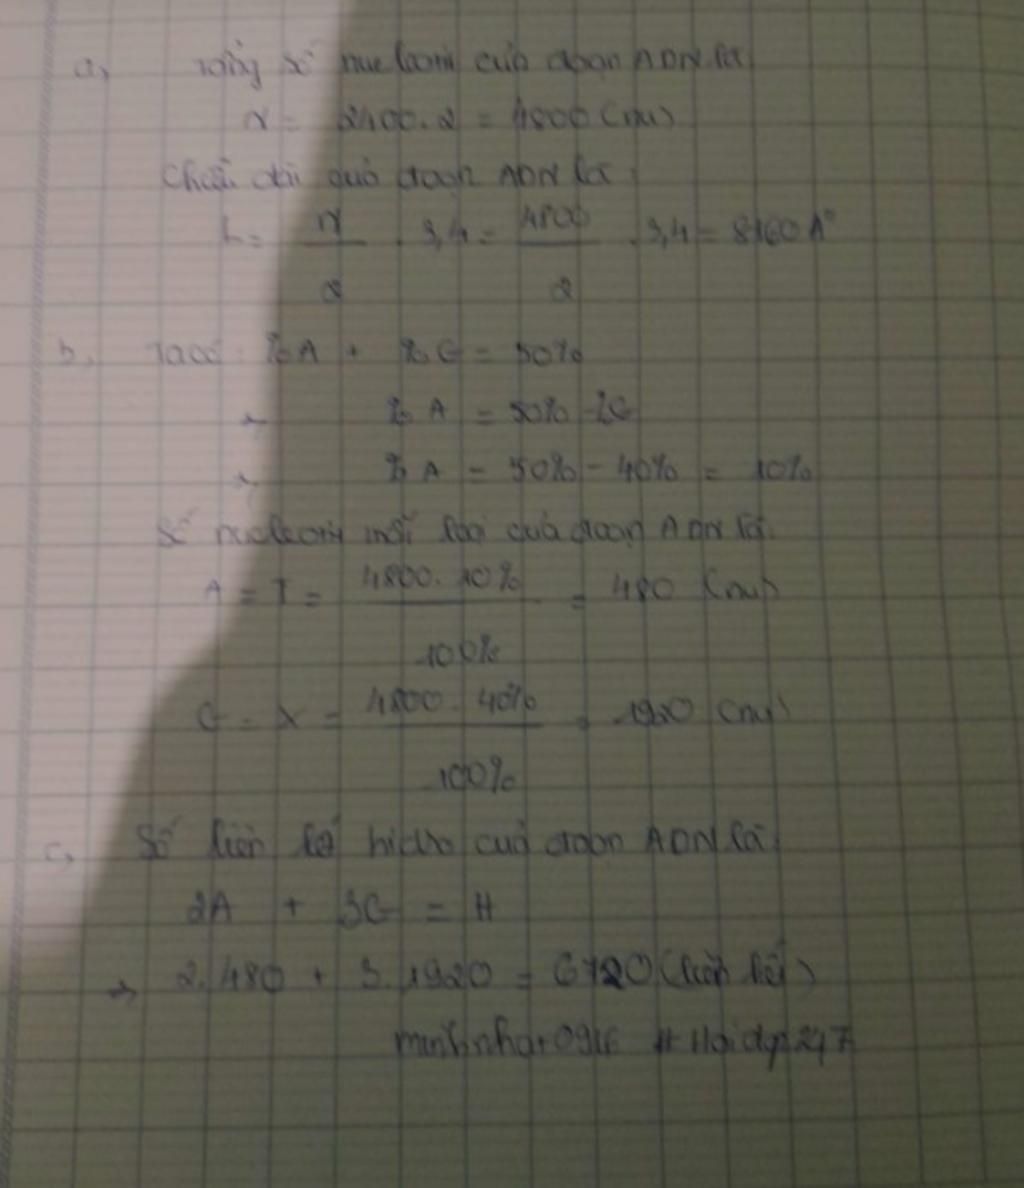 a, Tổng số nucleotit của đoạn ADN là
N = 2400.2 = 4800 (nu)
Chiều dài của đoạn ADN là:
L = N/2 . 3,4 = 4800/2 . 3,4 = 8160 A°
b. Ta có: %A + %G = 50%
→ %A = 50% - %G
→ %A = 50% - 40% = 10%
Số nucleotit mỗi loại của đoạn ADN là:
A = T = 4800.10%/100% = 480 (nu)
G = X = 4800.40%/100% = 1920 (nu)
c, Số liên kế hidro của đoạn ADN là:
2A + 3G = H
→ 2.480 + 3.1920 = 6720 (liên kết)
minhnhat0916 # Hoidap247